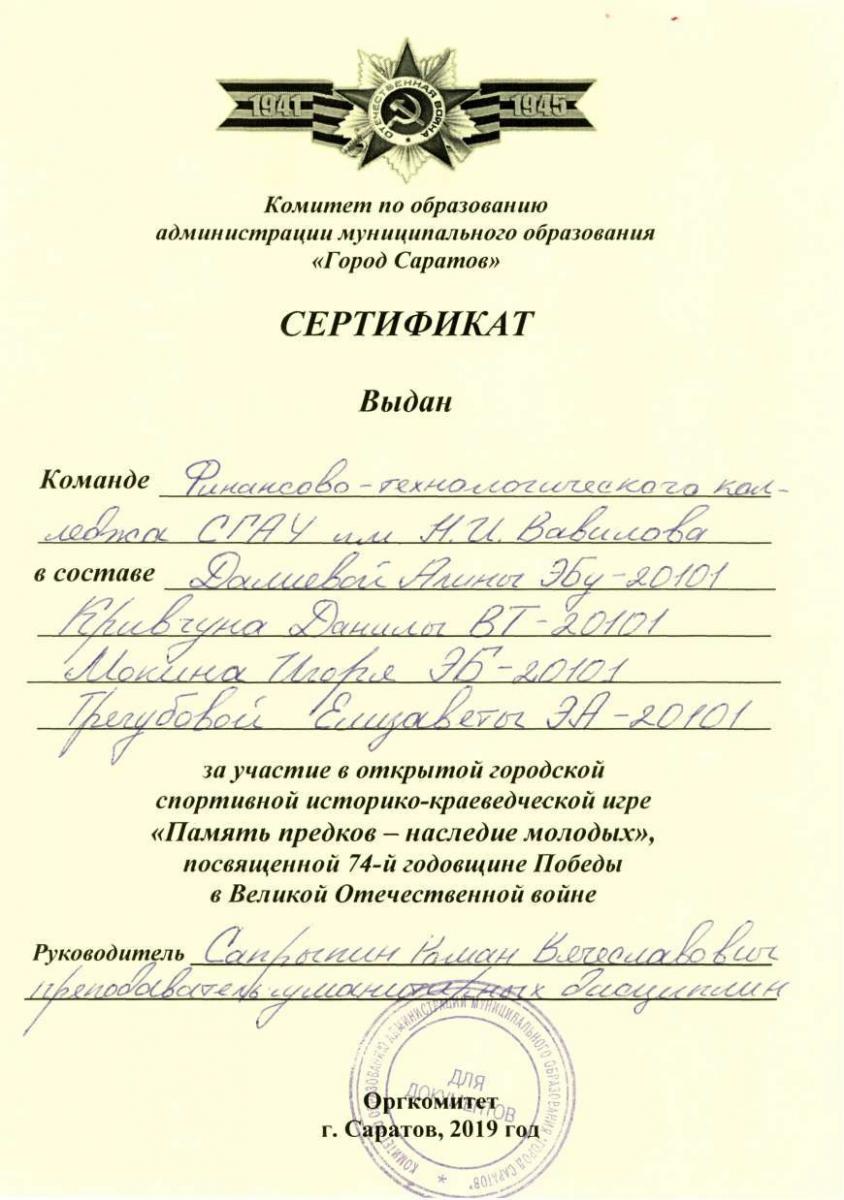 1941 ОТЕЧЕСТВЕННАЯ ВОЙНА 1945
Комитет по образованию
администрации муниципального образования
«Город Саратов»
СЕРТИФИКАТ
Выдан
Команде Финансово-технологического кол-
леджа СГАУ им Н.И. Вавилова
в составе Далиевой Алины ЭБу-20101
Кривчуна Данилы ВТ-20101
Мокина Игоря ЭБ-20101
Трегубовой Елизаветы ЭА-20101
за участие в открытой городской
спортивной историко-краеведческой игре
«Память предков – наследие молодых»,
посвященной 74-й годовщине Победы
в Великой Отечественной войне
Руководитель Сапрыкин Роман Вячеславович
преподаватель гуманитарных дисциплин
КОМИТЕТ ПО ОБРАЗОВАНИЮ АДМИНИСТРАЦИИ МУНИЦИПАЛЬНОГО ОБРАЗОВАНИЯ "ГОРОД САРАТОВ"
ДЛЯ
ДОКУМЕНТОВ
Оргкомитет
г. Саратов, 2019 год